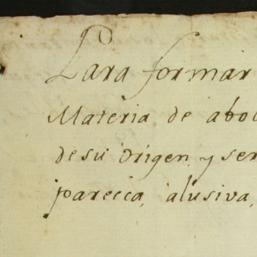 Para formar
Materia de abo
de su origen y ser
parecca, alusiva,